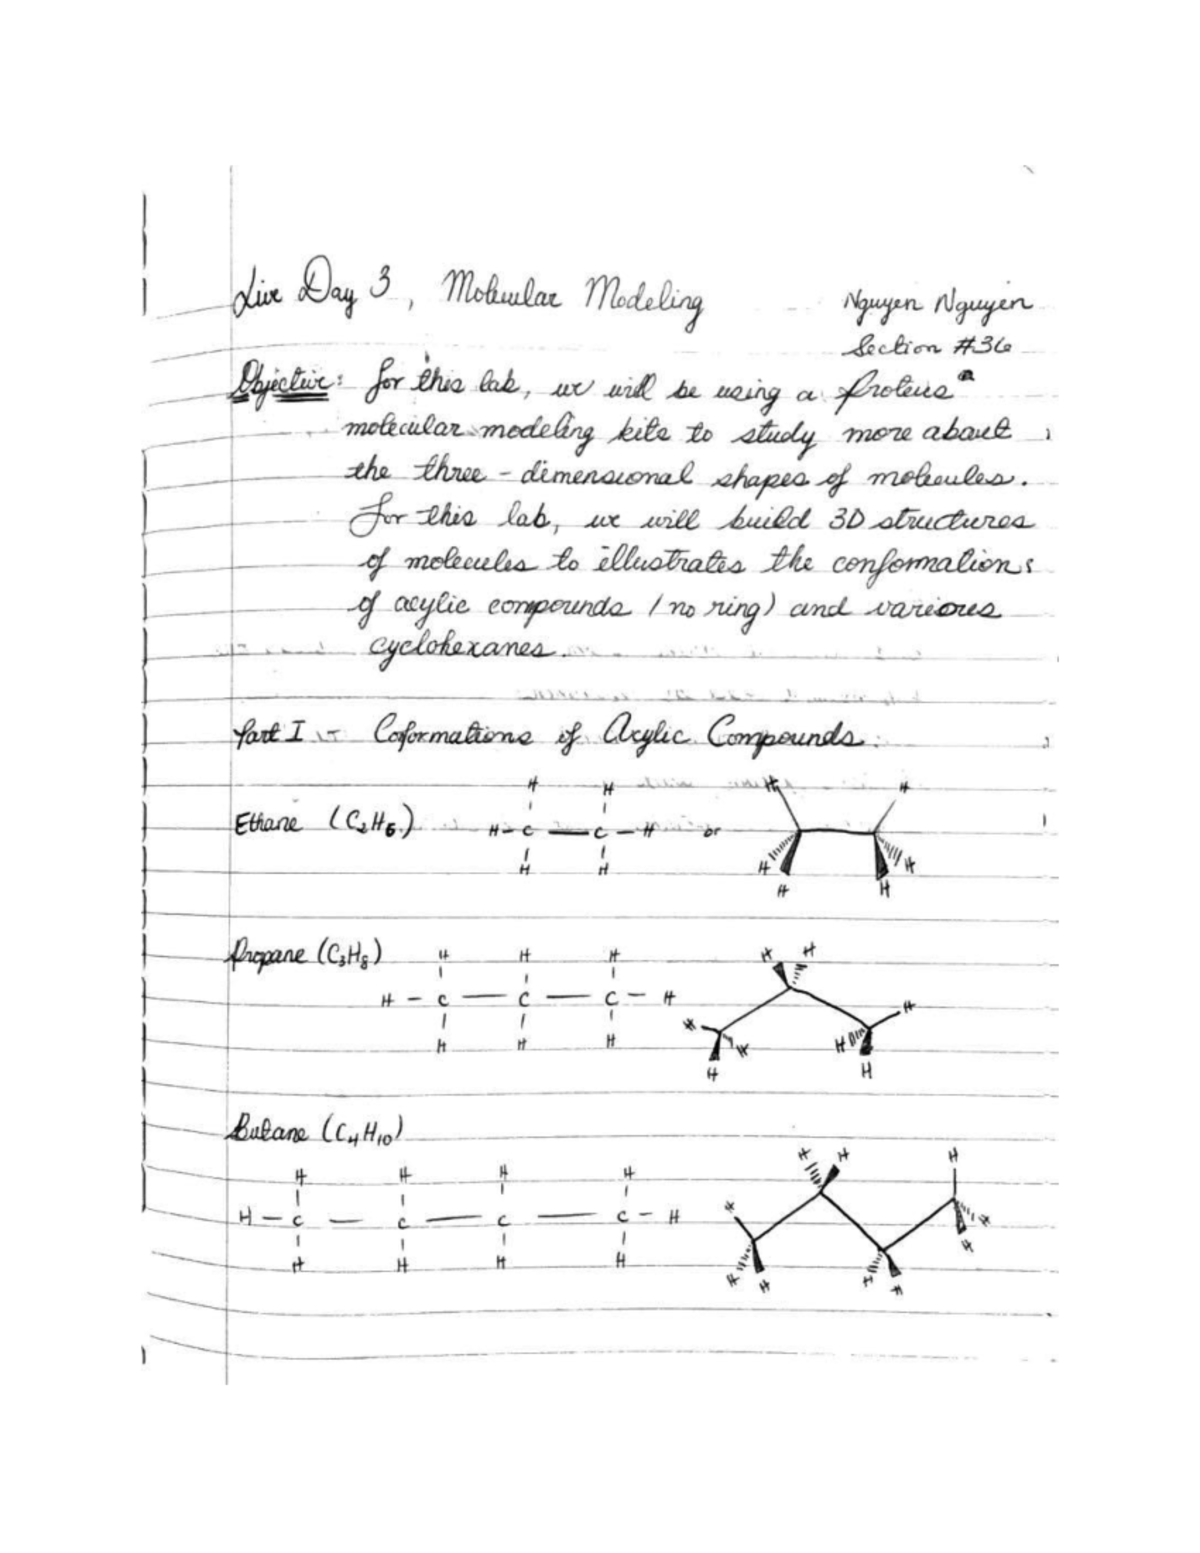 Live Day 3, Molecular Modeling
Nguyen Nguyen
Section #36
Objective: For this lab, we will be using a Proteus
molecular modeling kits to study more about
the three-dimensional shapes of molecules.
For this lab, we will build 3D structures
of molecules to illustrates the conformations
of acylic compounds (no ring) and various
cyclohexanes.
Part I - Coformations of Acylic Compounds.
H H H H
Ethane (C2H6) H-C-C-H or
H H H H
H H
Propane (C3H8) H H H H H
H-C-C-C-H H H
H H H H H
H H
Butane (C4H10)
H H H H H H H
H-C-C-C-C-H H H
H H H H H H H H H